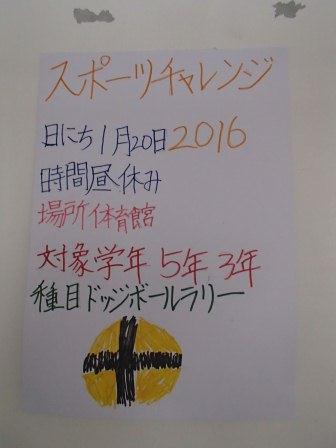 スポーツチャレンジ
日にち1月20日2016
時間昼休み
場所体育館
対象学年 5年 3年
種目ドッジボールラリー